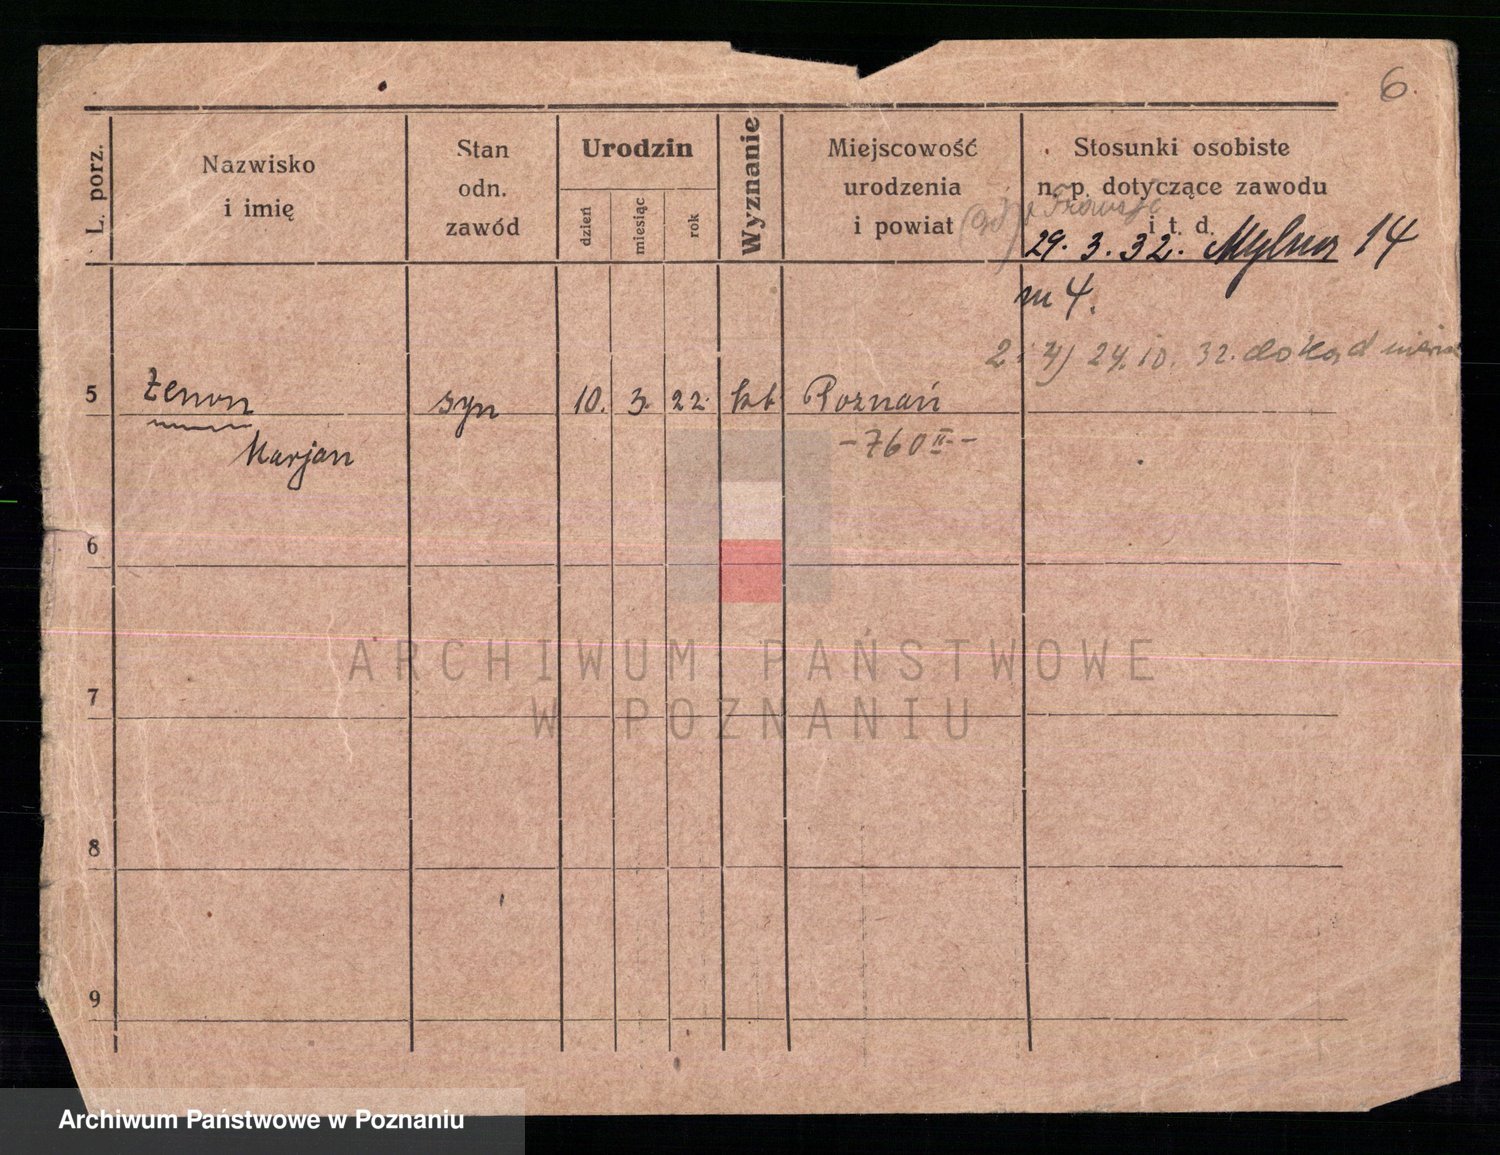 6.
L. porz.
Nazwisko
i imię
Stan
odn.
zawód
Urodzin
dzień
miesiąc
rok
Wyznanie
Miejscowość
urodzenia
i powiat
Stosunki osobiste
n. p. dotyczące zawodu
i t. d.
29. 3. 32. Mylna 14
m 4.
24. 10. 32. dokąd
5 Zenon syn 10. 3. 22. kat Poznań
Marjan
-760 II-
6
7
8
9
ARCHIWUM PAŃSTWOWE
W POZNANIU
Archiwum Państwowe w Poznaniu